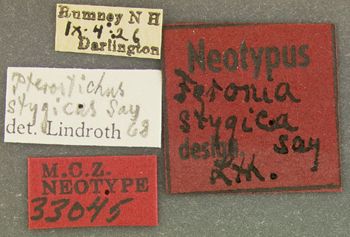 Rumney N H
IX.4.26
Darlington
Pterostichus
stygicus Say
det. Lindroth 68
M.C.Z.
NEOTYPE
33045
Neotypus
Feronia
stygica
Say
design.
Lth.